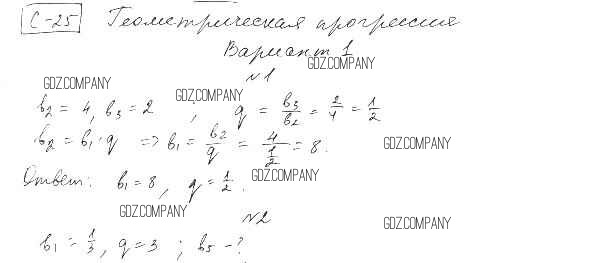 С-25 Геометрическая прогрессия
Вариант 1
GDZ.COMPANY
№1
GDZ.COMPANY
GDZ.COMPANY
b₂ = 4, b₃ = 2 ; q = b₃/b₂ = 2/4 = 1/2
b₂ = b₁·q => b₁ = b₂/q = 4/(1/2) = 8.
GDZ.COMPANY
Ответ: b₁ = 8, q = 1/2.
GDZ.COMPANY
GDZ.COMPANY
№2
GDZ.COMPANY
b₁ = 1/3, q = 3 ; b₅ - ?